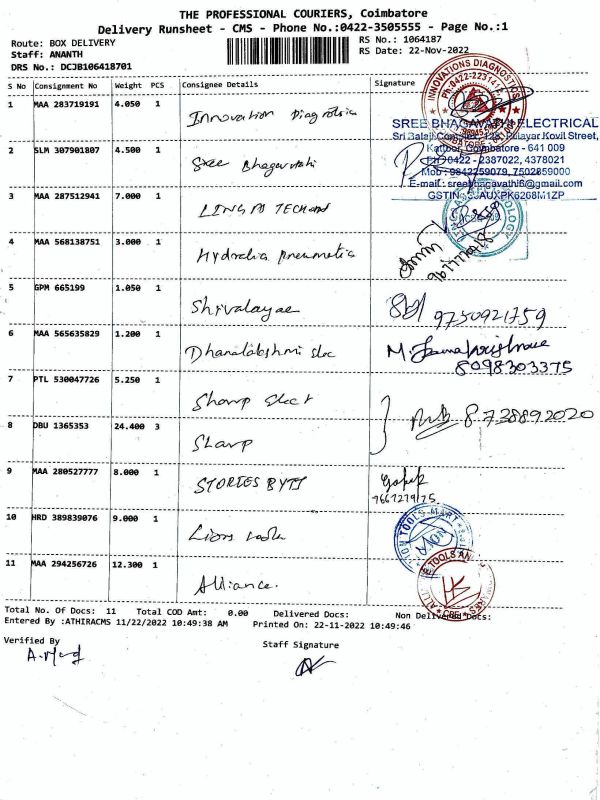 THE PROFESSIONAL COURIERS, Coimbatore
Delivery Runsheet - CMS - Phone No.:0422-3505555 - Page No.:1
Route: BOX DELIVERY
RS No.: 1064187
Staff: ANANTH
RS Date: 22-Nov-2022
DRS No.: DCJB106418701
S No Consignment No Weight PCS Consignee Details Signature
1 MAA 283719191 4.050 1 Innovation Diagnostics
INNOVATIONS DIAGNOSTICS
SREE BHAGAVATHI ELECTRICAL
Kattoor, Coimbatore - 641 009
PH:0422 - 2387022, 4378021
Mob : 9842259079, 7502859000
E-mail : sreebhagavathi6@gmail.com
2 SLM 307901807 4.500 1 Sree Bhagavathi
3 MAA 287512941 7.000 1
4 MAA 568138751 3.000 1 Hydralia pneumatic
5 GPM 665199 1.050 1 Shrivalayae
9750921759
6 MAA 565635829 1.200 1 Dhanalakshmi elec
8098303375
7 PTL 530047726 5.250 1 Sharp elect
8738892020
8 DBU 1365353 24.400 3 Sharp
9 MAA 280527777 8.000 1 STORIES BYTS
10 HRD 389839076 9.000 1 Lions
TOOLS MART
11 MAA 294256726 12.300 1 Alliance.
TOOLS AND
Total No. Of Docs: 11 Total COD Amt: 0.00 Delivered Docs: Non Delivered Docs:
Entered By :ATHIRACMS 11/22/2022 10:49:38 AM Printed On: 22-11-2022 10:49:46
Verified By
Staff Signature